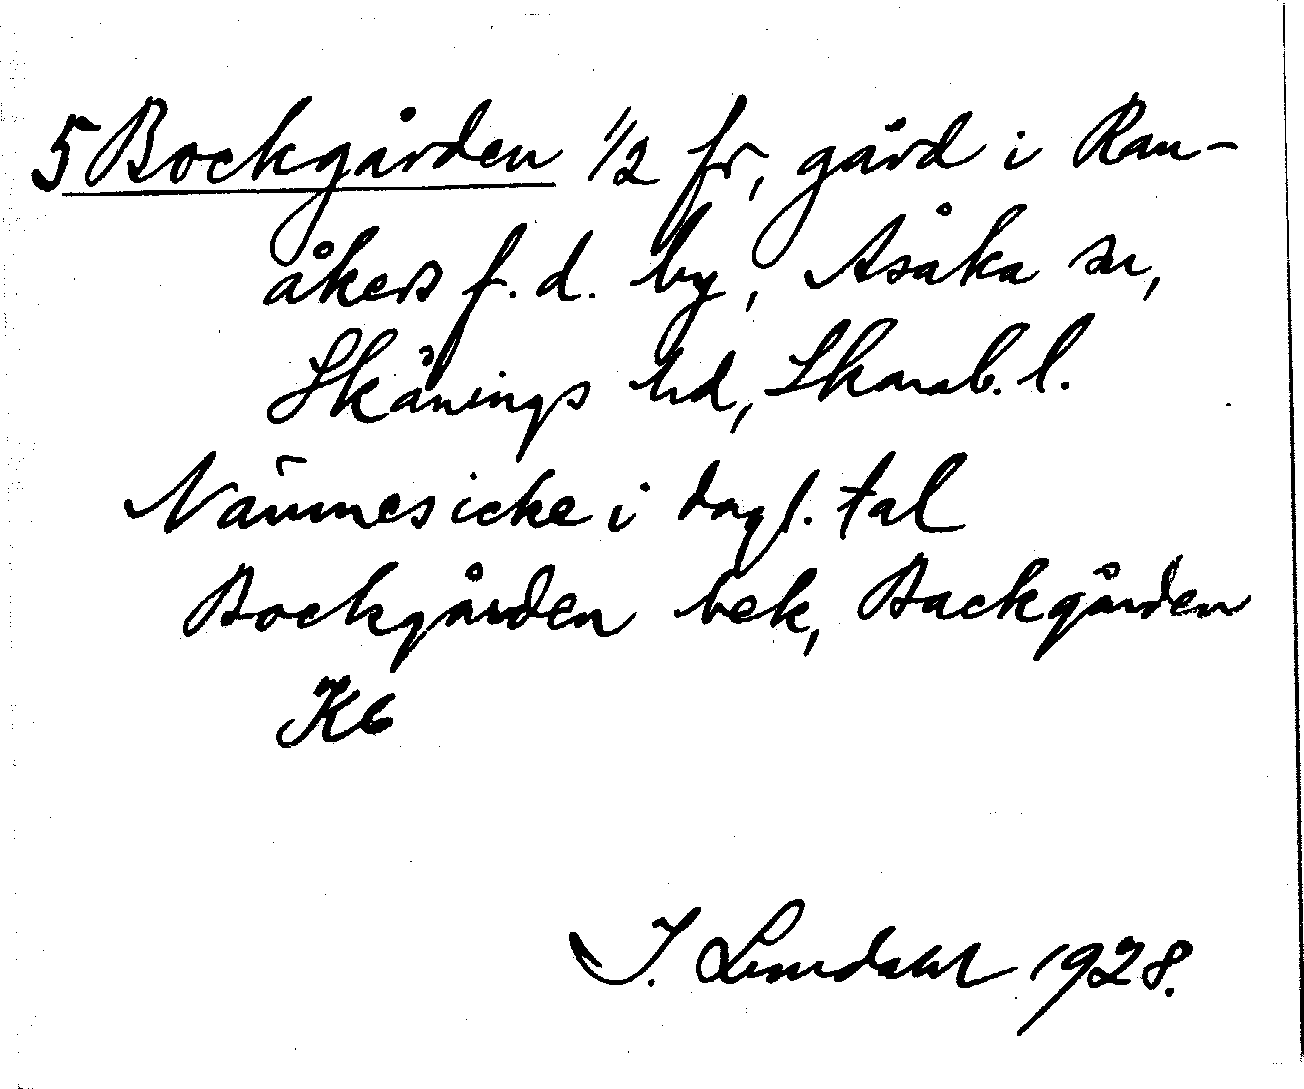 5 Bockgården 1/2 fr, gård i Ran-
åkers f. d. by, Åsaka sn,
Skånings hd, Skarab. l.
Nämnes icke i dagl. tal
Bockgården bek, Backgården
Kb
I. Lundahl 1928.